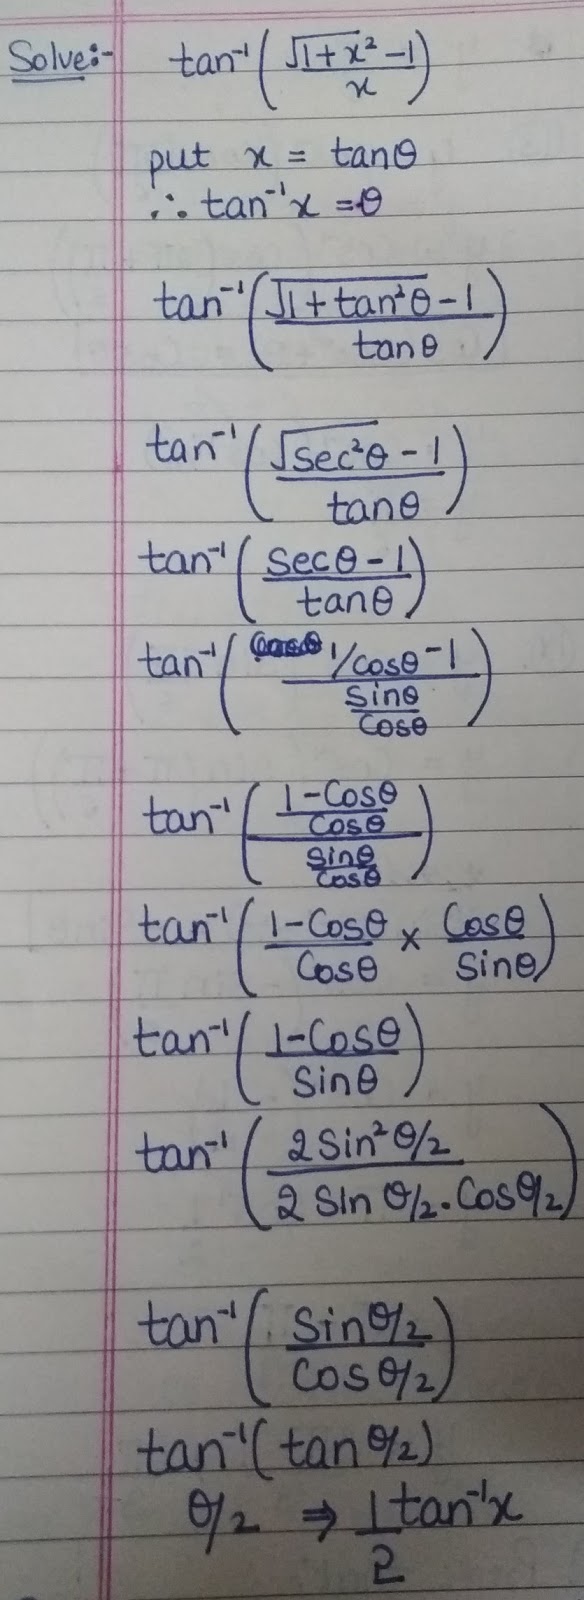 Solve:- tan⁻¹(√(1+x²) -1 / x)
put x = tanθ
∴ tan⁻¹x = θ
tan⁻¹(√(1+tan²θ) -1 / tanθ)
tan⁻¹(√(sec²θ) -1 / tanθ)
tan⁻¹(secθ -1 / tanθ)
tan⁻¹(1/cosθ -1 / (sinθ / cosθ))
tan⁻¹((1-Cosθ / Cosθ) / (sinθ / cosθ))
tan⁻¹(1-Cosθ / Cosθ × Cosθ / Sinθ)
tan⁻¹(1-Cosθ / Sinθ)
tan⁻¹(2Sin²θ/2 / 2 Sin θ/2 . Cosθ/2)
tan⁻¹(Sinθ/2 / Cosθ/2)
tan⁻¹(tanθ/2)
θ/2 ⇒ 1/2 tan⁻¹x